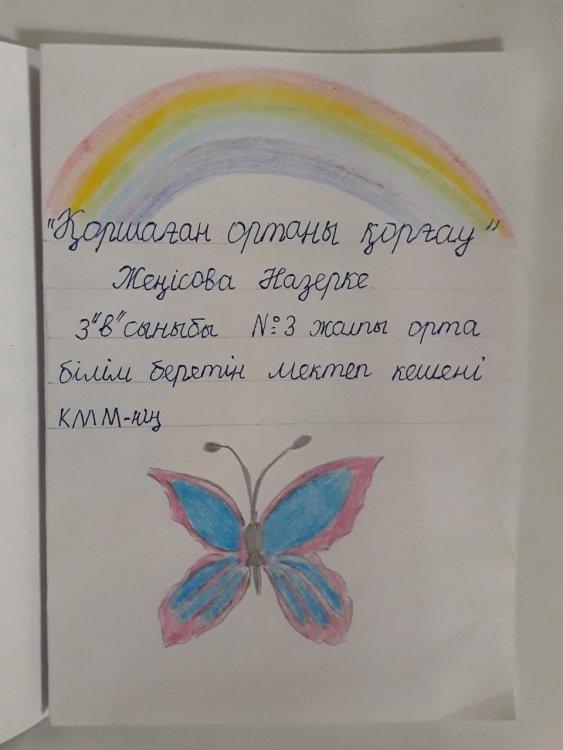 "Қоршаған ортаны қорғау"
Жеңісова Назерке.
3"в" сыныбы №3 жалпы орта
білім беретін мектеп кешені
КММ-нің